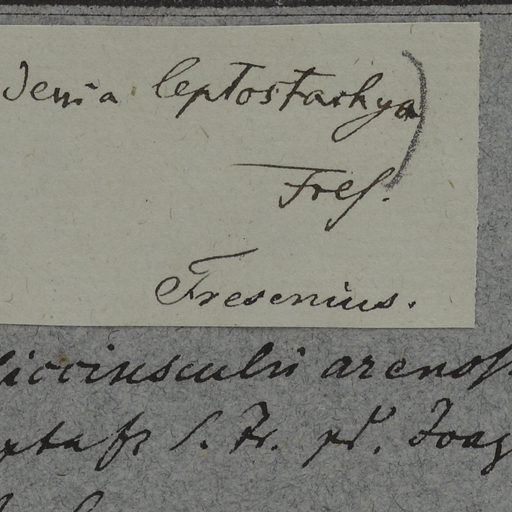 denia leptostachya)
Fres.
Fresenius.
sicciusculis arenos
S. Fr. pr. Joag